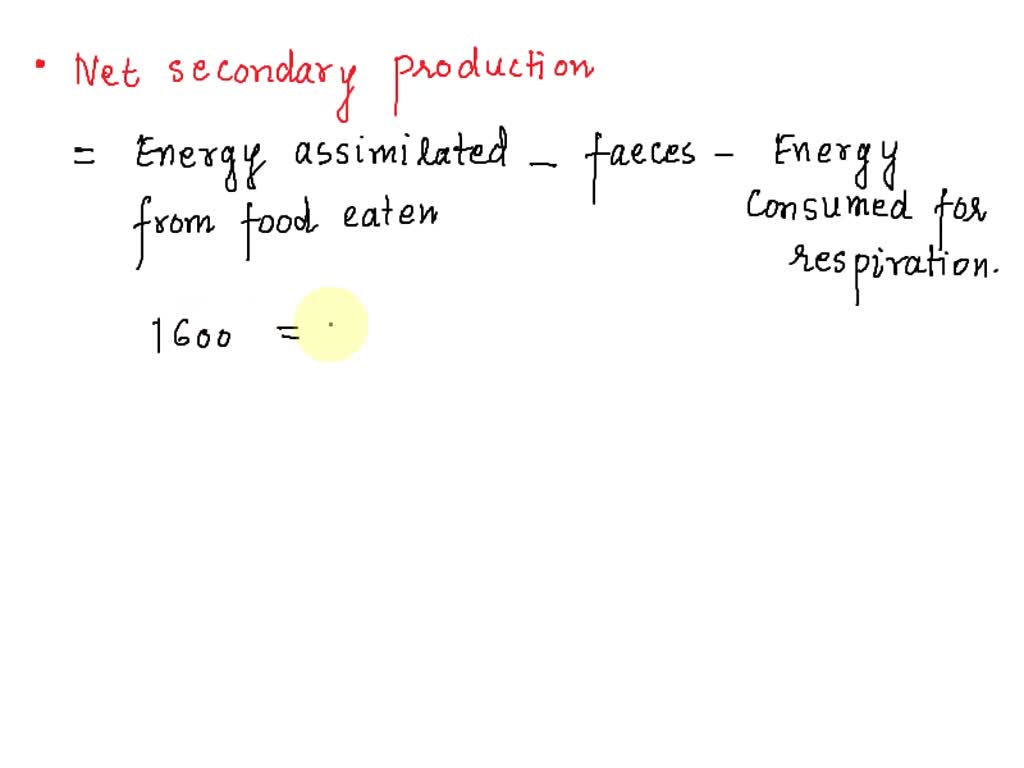 • Net secondary production
= Energy assimilated - faeces - Energy
from food eaten consumed for
respiration.
1600 =